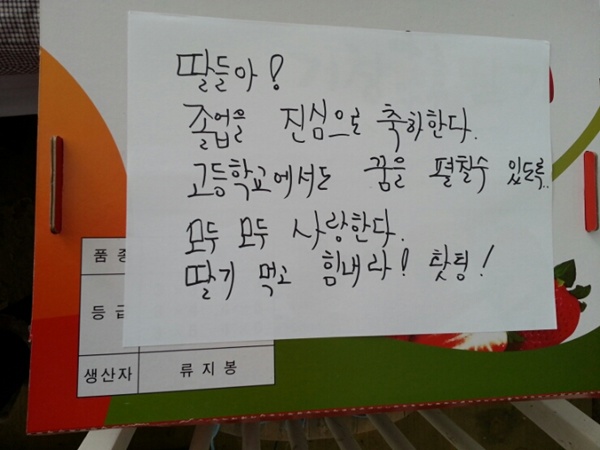 딸들아!
졸업을 진심으로 축하한다.
고등학교에서도 꿈을 펼칠수 있도록..
모두 모두 사랑한다.
딸기 먹고 힘내라! 홧팅!
품 종
등 급
생산자 류 지 봉